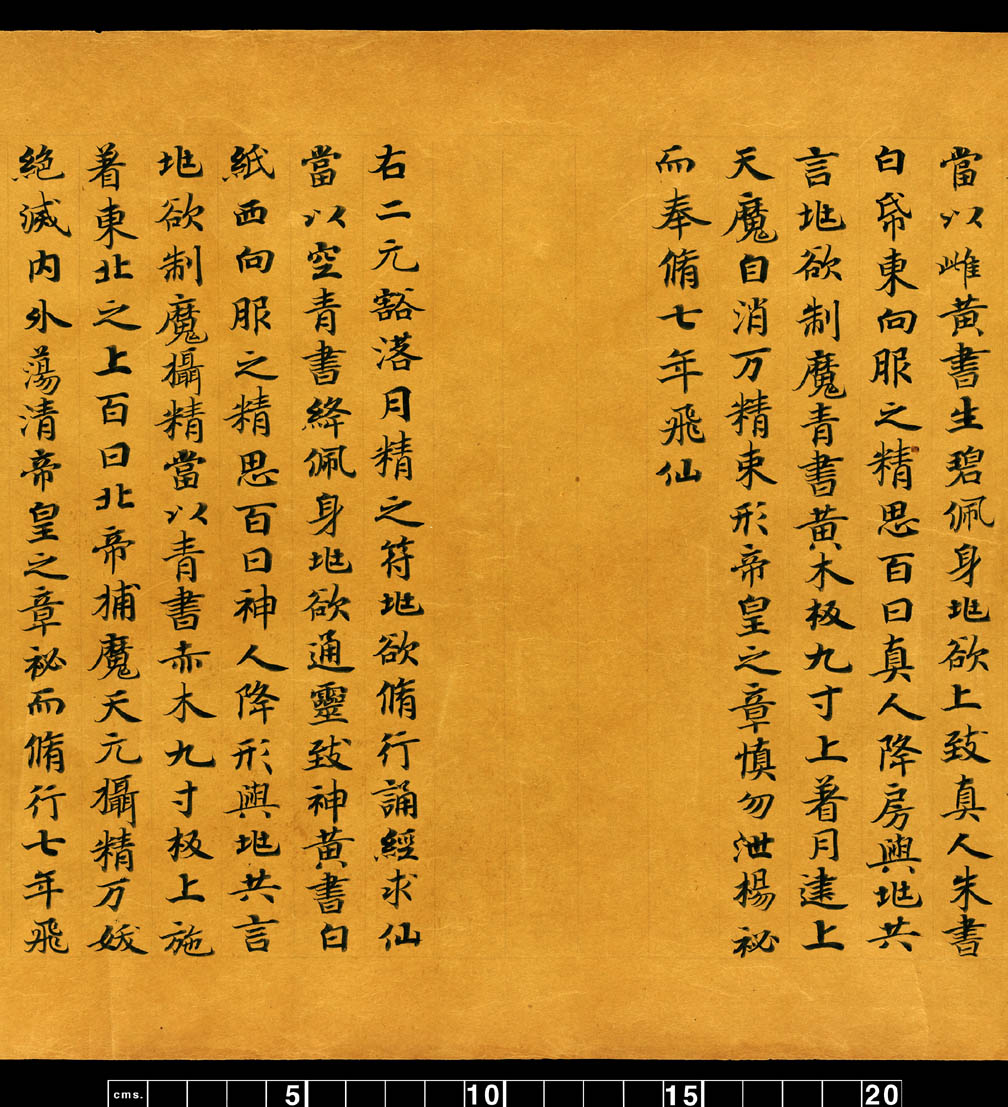 當以雌黃書生碧佩身兆欲上致真人朱書
白帋東向服之精思百日真人降房與兆共
言兆欲制魔青書黃木板九寸上著月建上
天魔自消万精束形帝皇之章慎勿泄楊祕
而奉脩七年飛仙
右二元豁落月精之符兆欲脩行誦經求仙
當以空青書絳佩身兆欲通靈致神黃書白
紙西向服之精思百日神人降形與兆共言
兆欲制魔攝精當以青書赤木九寸板上施
著東北之上百日北帝捕魔天元攝精万妖
絕滅內外蕩清帝皇之章祕而脩行七年飛
cms. 5 10 15 20